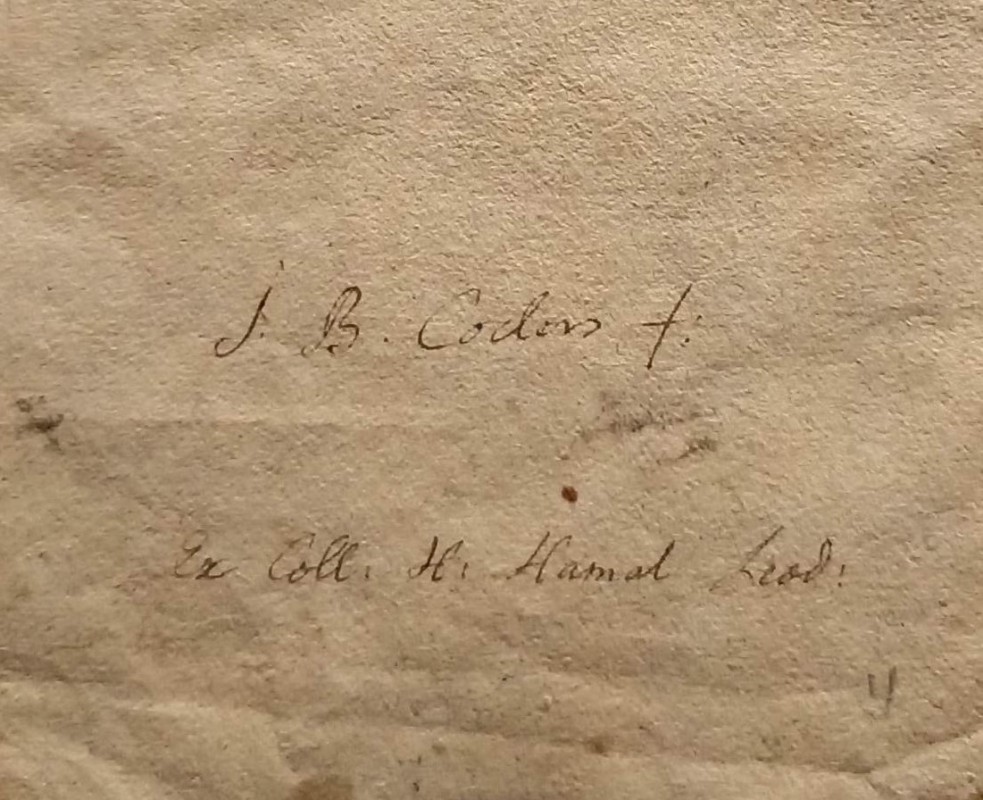 J. B. Coders f:
Ex Coll: H: Hamal Leod: